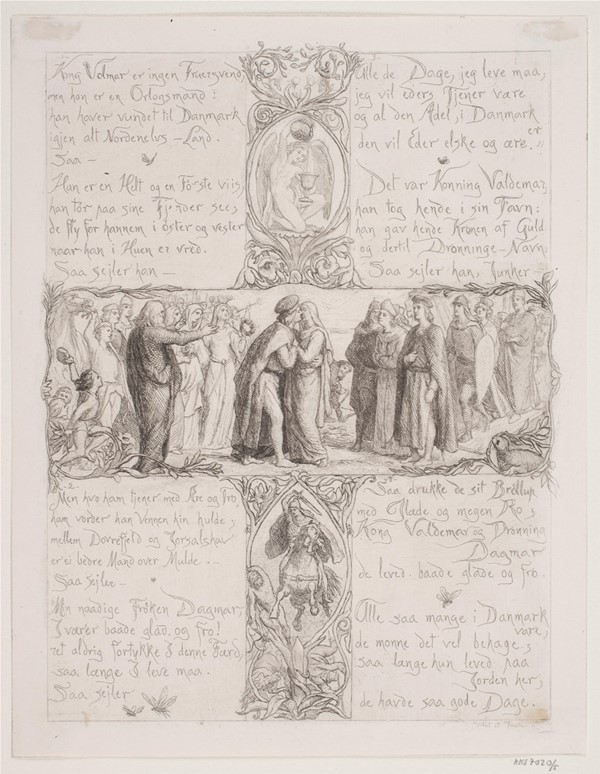 Kong Volmar er ingen Fruersvend,
men han er en Orlogsmand:
han haver vundet til Danmark
igjen alt Nordenelvs-Land.
Saa –
Han er en Helt og en Förste viis,
han tör paa sine Fjender see;
de fly for hannem i öster og vester
naar han i Huen er vred.
Saa sejler han –
2.
Men hvo ham tjener med Ære og tro,
ham vorder han Vennen hin hulde;
mellem Dovrefjeld og Korsalshav
er ei bedre Mand over Mulde. –
Saa sejler –
Min naadige Fröken Dagmar,
I værer baade glad og fro!
ret aldrig fortykke I denne Færd,
saa længe I leve maa.
Saa sejler
Alle de Dage, jeg leve maa,
jeg vil eders Tjener være
og al den Adel, i Danmark er
den vil Eder elske og ære."
Det var Konning Valdemar,
han tog hende i sin Favn:
han gav hende Kronen af Guld
og dertil Dronninge-Navn.
Saa sejler han, Junker
Saa drukke de sit Bröllup
med Glade og megen Ro;
Kong Valdemar og Dronning
Dagmar
de leved baade glade og fro.
Alle saa mange i Danmark
vare,
de monne det vel behage;
saa længe hun leved paa
Jorden her,
de havde saa gode Dage.